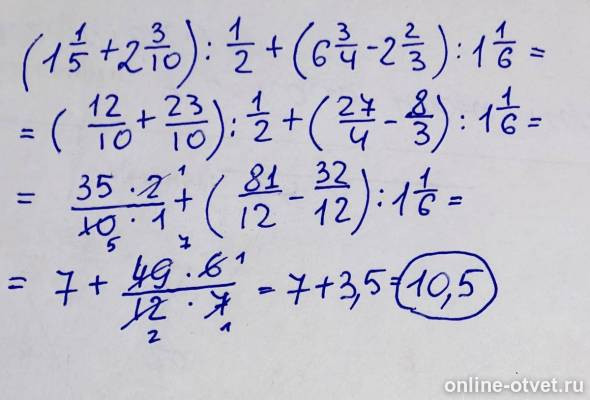 (1 1/5 + 2 3/10) : 1/2 + (6 3/4 - 2 2/3) : 1 1/6 =
= (12/10 + 23/10) : 1/2 + (27/4 - 8/3) : 1 1/6 =
= 35 · 2 1 / 10 5 · 1 + (81/12 - 32/12) : 1 1/6 =
= 7 + 49 7 · 6 1 / 12 2 · 7 1 = 7 + 3,5 = 10,5
online-otvet.ru